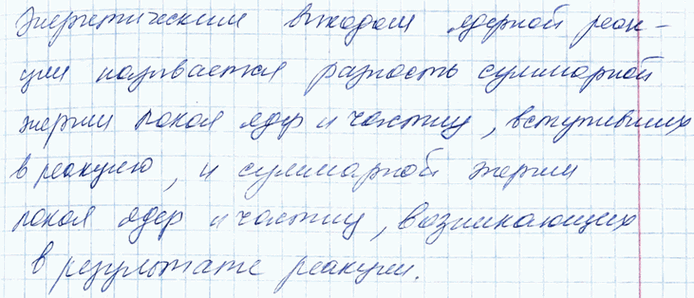 Энергетическим выходом ядерной реак-
ции называется разность суммарной
энергии покоя ядер и частиц, вступивших
в реакцию, и суммарной энергии
покоя ядер и частиц, возникающих
в результате реакции.